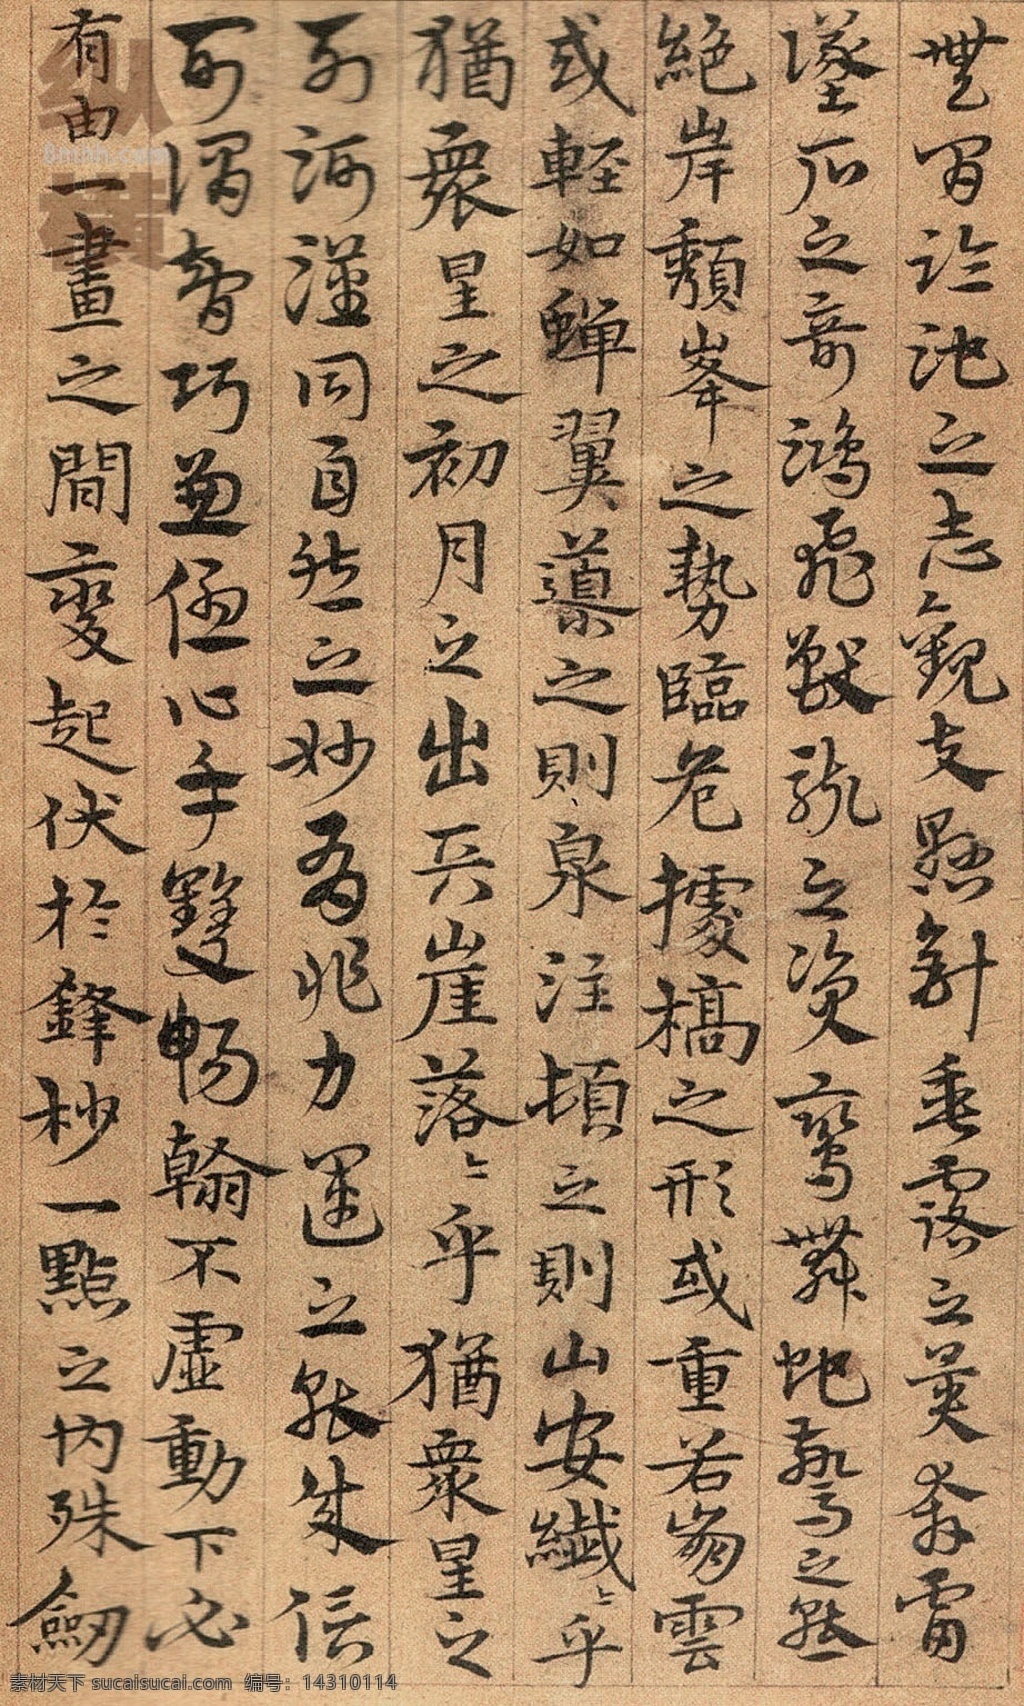 無間臨池之志觀夫懸針垂露之異奔雷
墜石之奇鴻飛獸駭之資鸞舞蛇驚之態
絕岸頹峯之勢臨危據槁之形或重若崩雲
或輕如蟬翼導之則泉注頓之則山安纖〻乎
猶眾星之初月之出兵崖落〻乎猶眾星之
列河漢同自然之妙有非力運之能成信
可謂智巧兼優心手雙暢翰不虛動下必
有由一畫之間變起伏於鋒杪一點之內殊劒
纵横
素材天下 sucaisucai.com 编号：14310114